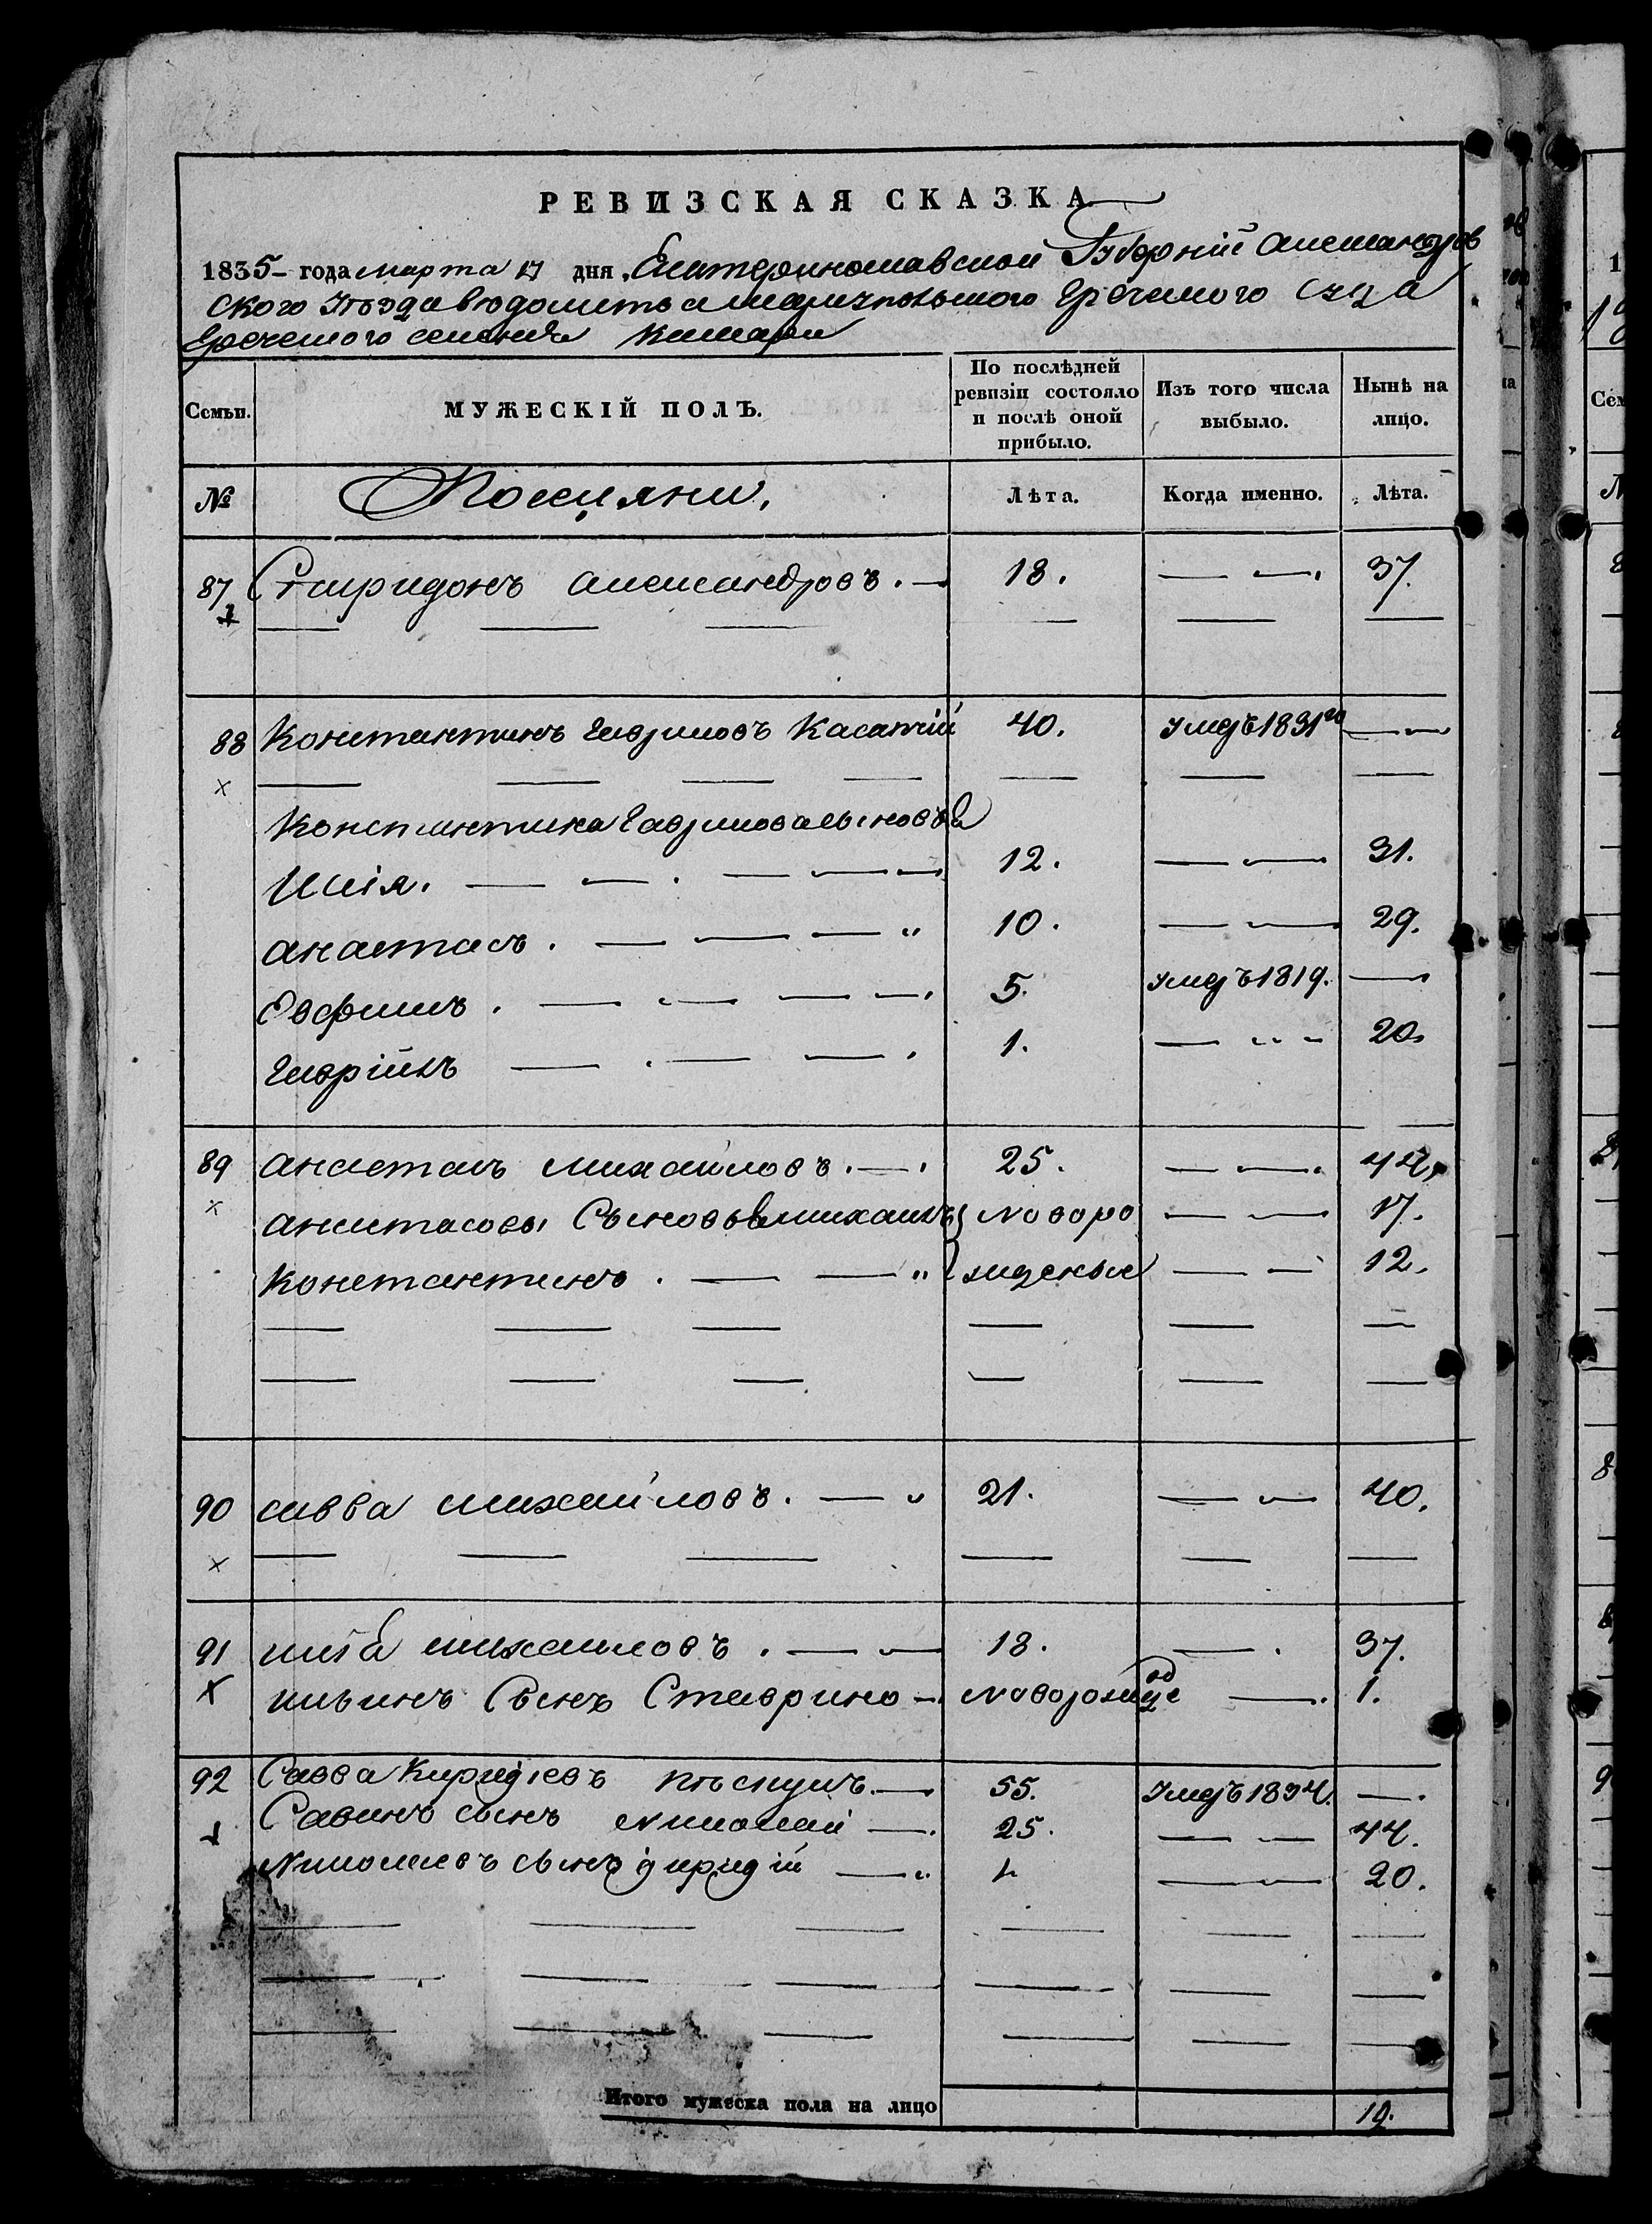 РЕВИЗСКАЯ СКАЗКА
1835 года марта 17 дня Екатеринославской Губерніи Александров
ского уезда ведомства мариупольского Греческого суда
Греческого селения
Семьи. МУЖЕСКІЙ ПОЛЪ. По послѣдней ревизіи состояло и послѣ оной прибыло. Изъ того числа выбыло. Нынѣ на лицо.
№ Поселяни. Лѣта. Когда именно. Лѣта.
87 Спиридонъ александровъ. 18. 37.
88 Константинъ Гавриловъ 40. умеръ 1831го
Константина Гаврилова сыновья
Илія. 12. 31.
анастасъ. 10. 29.
Евфимъ. 5. умеръ 1819.
Гаврійлъ 1. 20.
89 анастасъ михайловъ. 25. 44.
анастасовы Сыновья михаилъ новоро 17.
Константинъ. жденые 12.
90 савва михайловъ. 21. 40.
91 илія михаиловъ. 18. 37.
ильинъ Сынъ Ставрино новорожде 1.
92 Савва 55. Умеръ 1834.
Савинъ сынъ николай 25. 44.
Николаевъ сынъ 1. 20.
Итого мужеска пола на лицо 12.